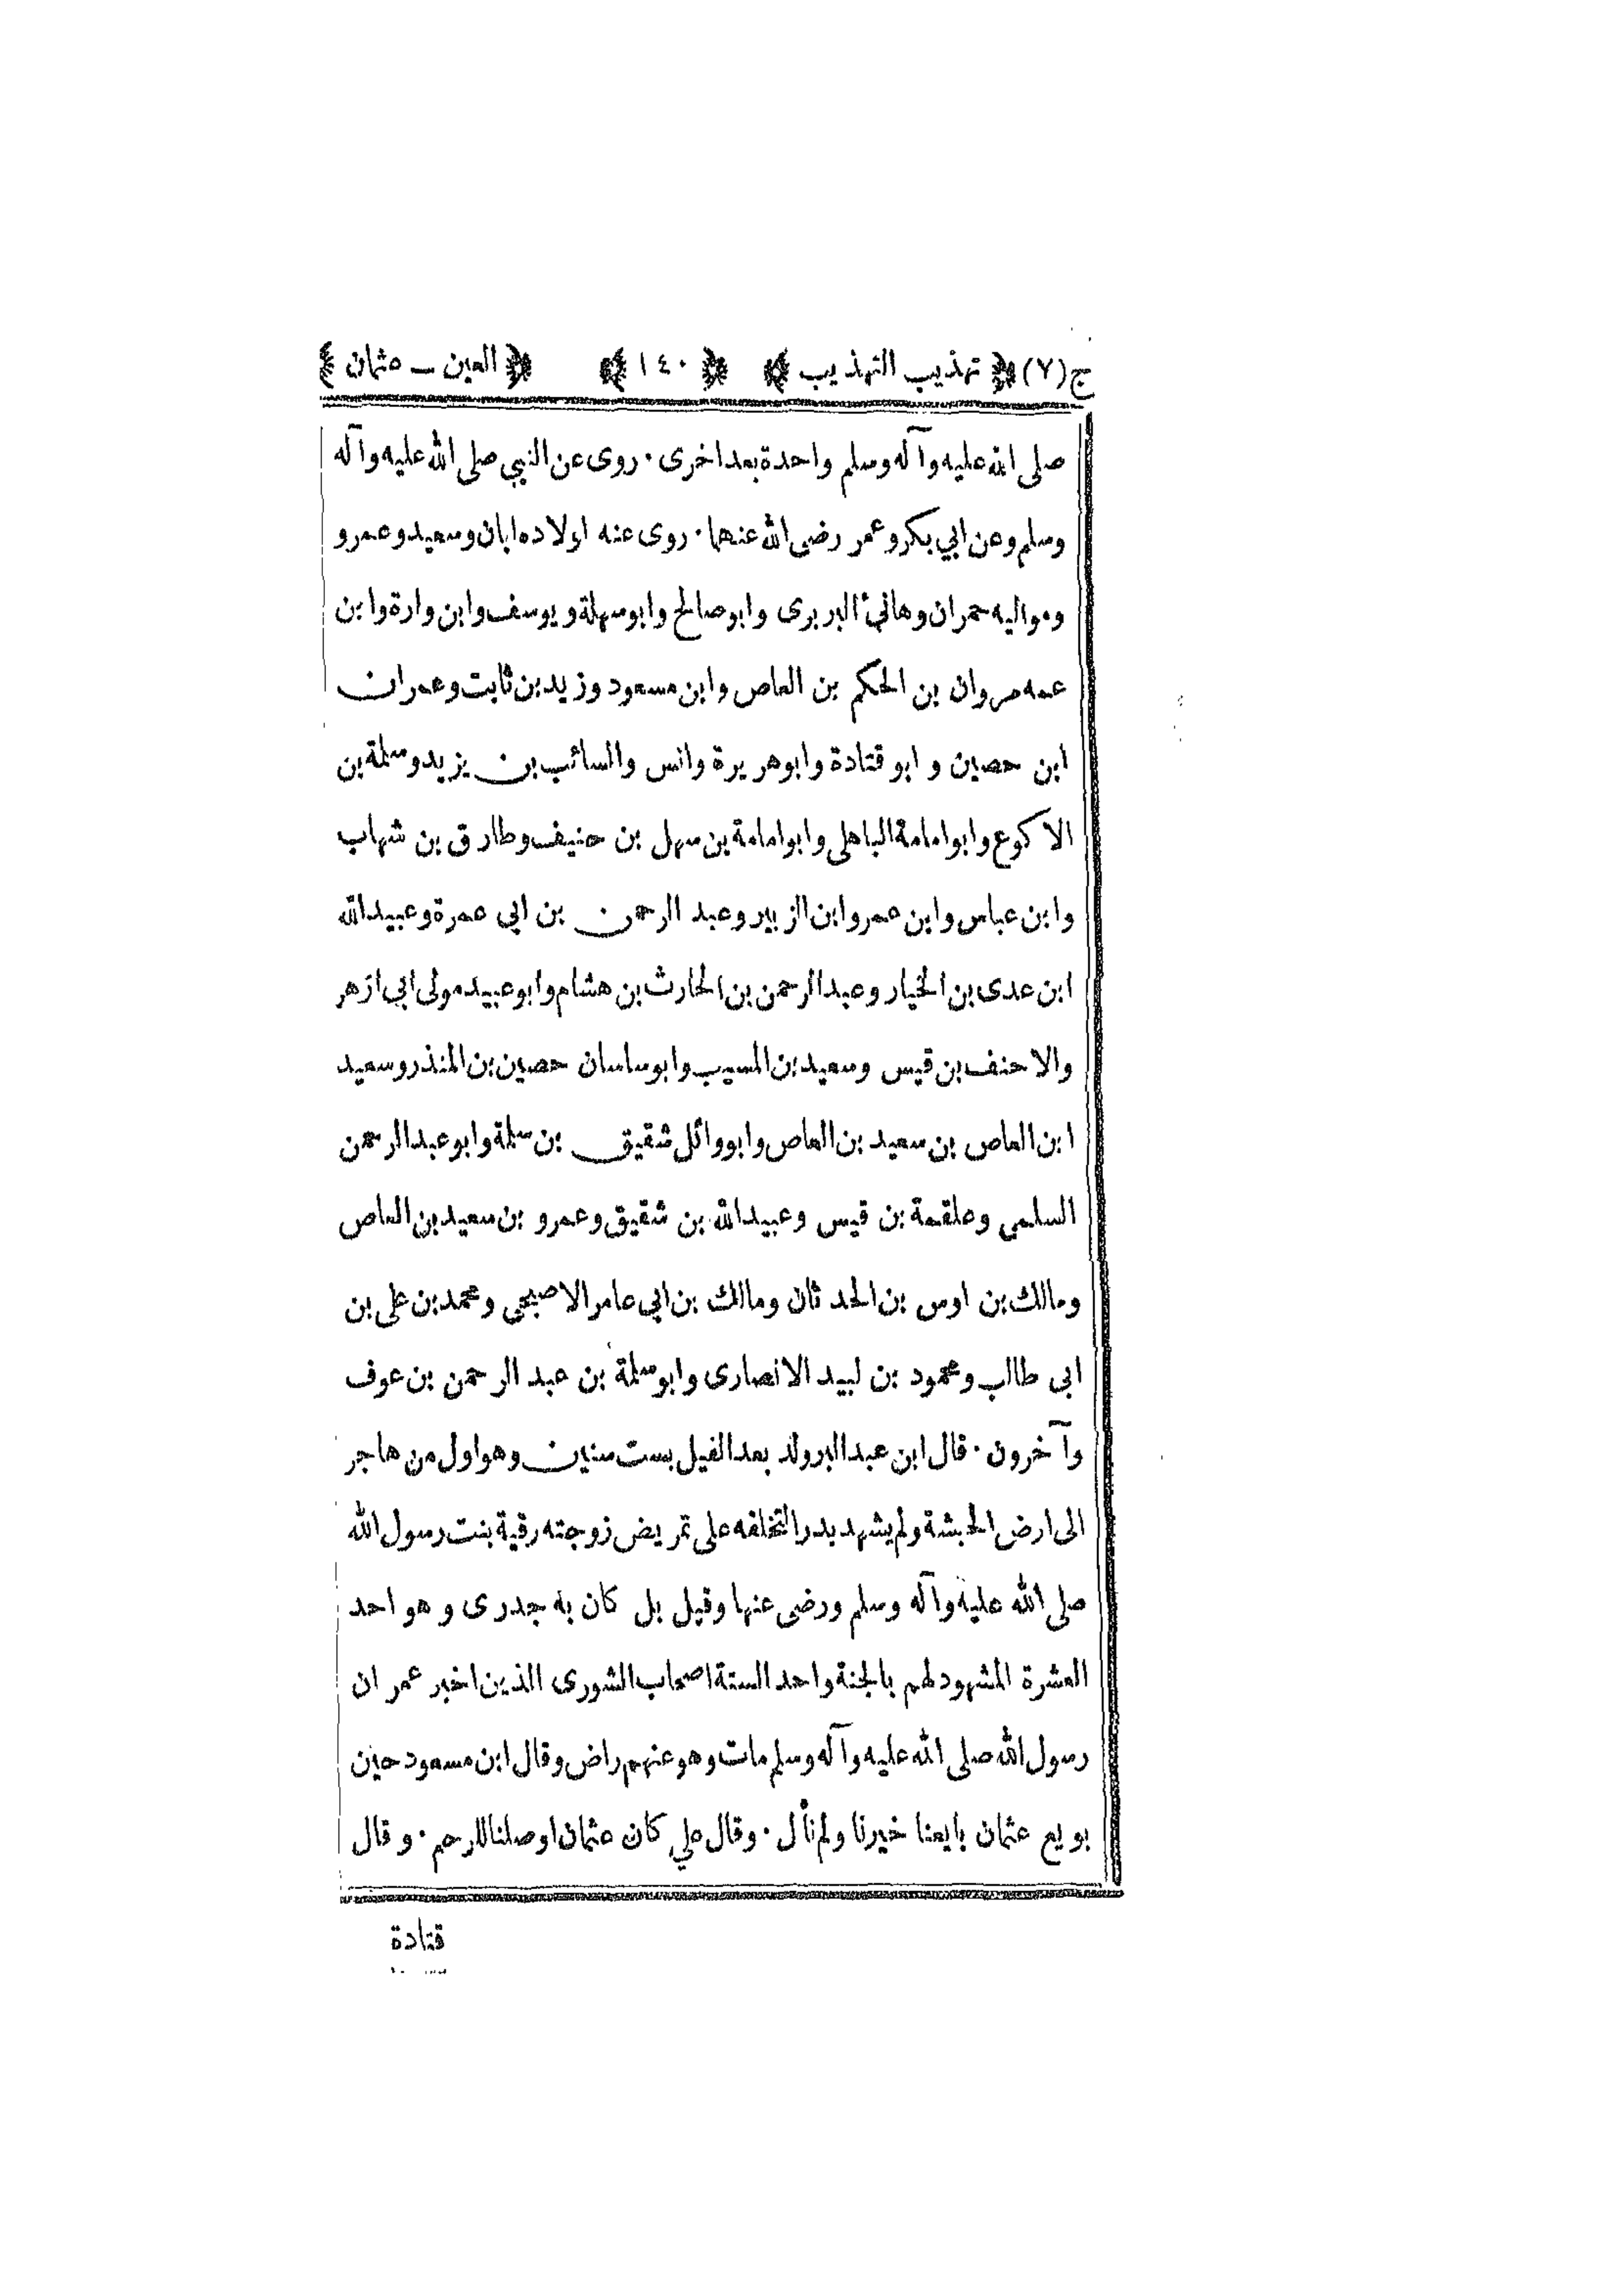 ج(٧) ﴿ تهذيب التهذيب ﴾ ﴿ ١٤٠ ﴾ ﴿ العين ـ عثمان ﴾
صلى الله عليه وآله وسلم واحدة بعد اخرى ٠ روى عن النبي صلى الله عليه وآله
وسلم وعن ابي بكر وعمر رضى الله عنهما ٠ روى عنه اولاده ابان وسعيد وعمرو
ومواليه حمران وهانئ البربرى وابو صالح وابو سهلة ويوسف وابن وارة وابن
عمه مروان بن الحكم بن العاص وابن مسعود وزيد بن ثابت وعمران
ابن حصين وابو قتادة وابو هريرة وانس والسائب بن يزيد وسلمة بن
الاكوع وابو امامة الباهلى وابو امامة بن سهل بن حنيف وطارق بن شهاب
وابن عباس وابن عمر وابن الزبير وعبد الرحمن بن ابي عمرة وعبيد الله
ابن عدى بن الخيار وعبد الرحمن بن الحارث بن هشام وابو عبيد مولى ابي ازهر
والاحنف بن قيس وسعيد بن المسيب وابو ساسان حصين بن المنذر وسعيد
ابن العاص بن سعيد بن العاص وابو وائل شقيق بن سلمة وابو عبد الرحمن
السلمي وعلقمة بن قيس وعبيد الله بن شقيق وعمرو بن سعيد بن العاص
ومالك بن اوس بن الحدثان ومالك بن ابي عامر الاصبحي ومحمد بن على بن
ابي طالب ومحمود بن لبيد الانصارى وابو سلمة بن عبد الرحمن بن عوف
وآخرون ٠ قال ابن عبد البر ولد بعد الفيل بست سنين وهو اول من هاجر
الى ارض الحبشة ولم يشهد بدرا لتخلفه على تمريض زوجته رقية بنت رسول الله
صلى الله عليه وآله وسلم ورضى عنها وقيل بل كان به جدرى وهو احد
العشرة المشهود لهم بالجنة واحد الستة اصحاب الشورى الذين اخبر عمر ان
رسول الله صلى الله عليه وآله وسلم مات وهو عنهم راض وقال ابن مسعود حين
بويع عثمان بايعنا خيرنا ولم نأل ٠ وقال علي كان عثمان اوصلنا للرحم ٠ وقال
قتادة